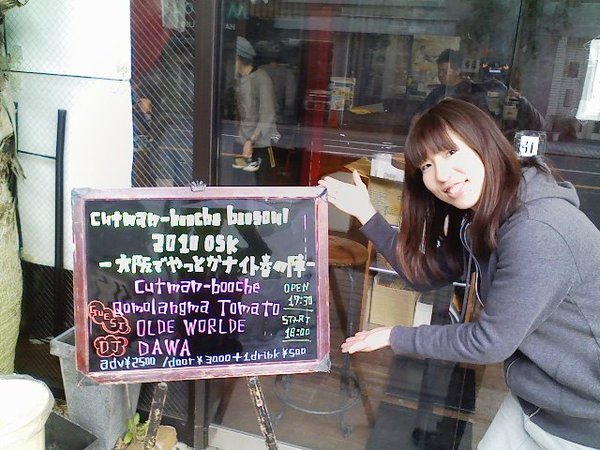 cutman-booche boosoul
2010 OSK
-大阪でやっとガナイト春の陣-
cutman-booche
OPEN
17:30
GUEST
Qomolangma Tomato
OLDE WORLDE
START
18:00
DJ
DAWA
adv¥2500 /door¥3000+1drink¥500
31